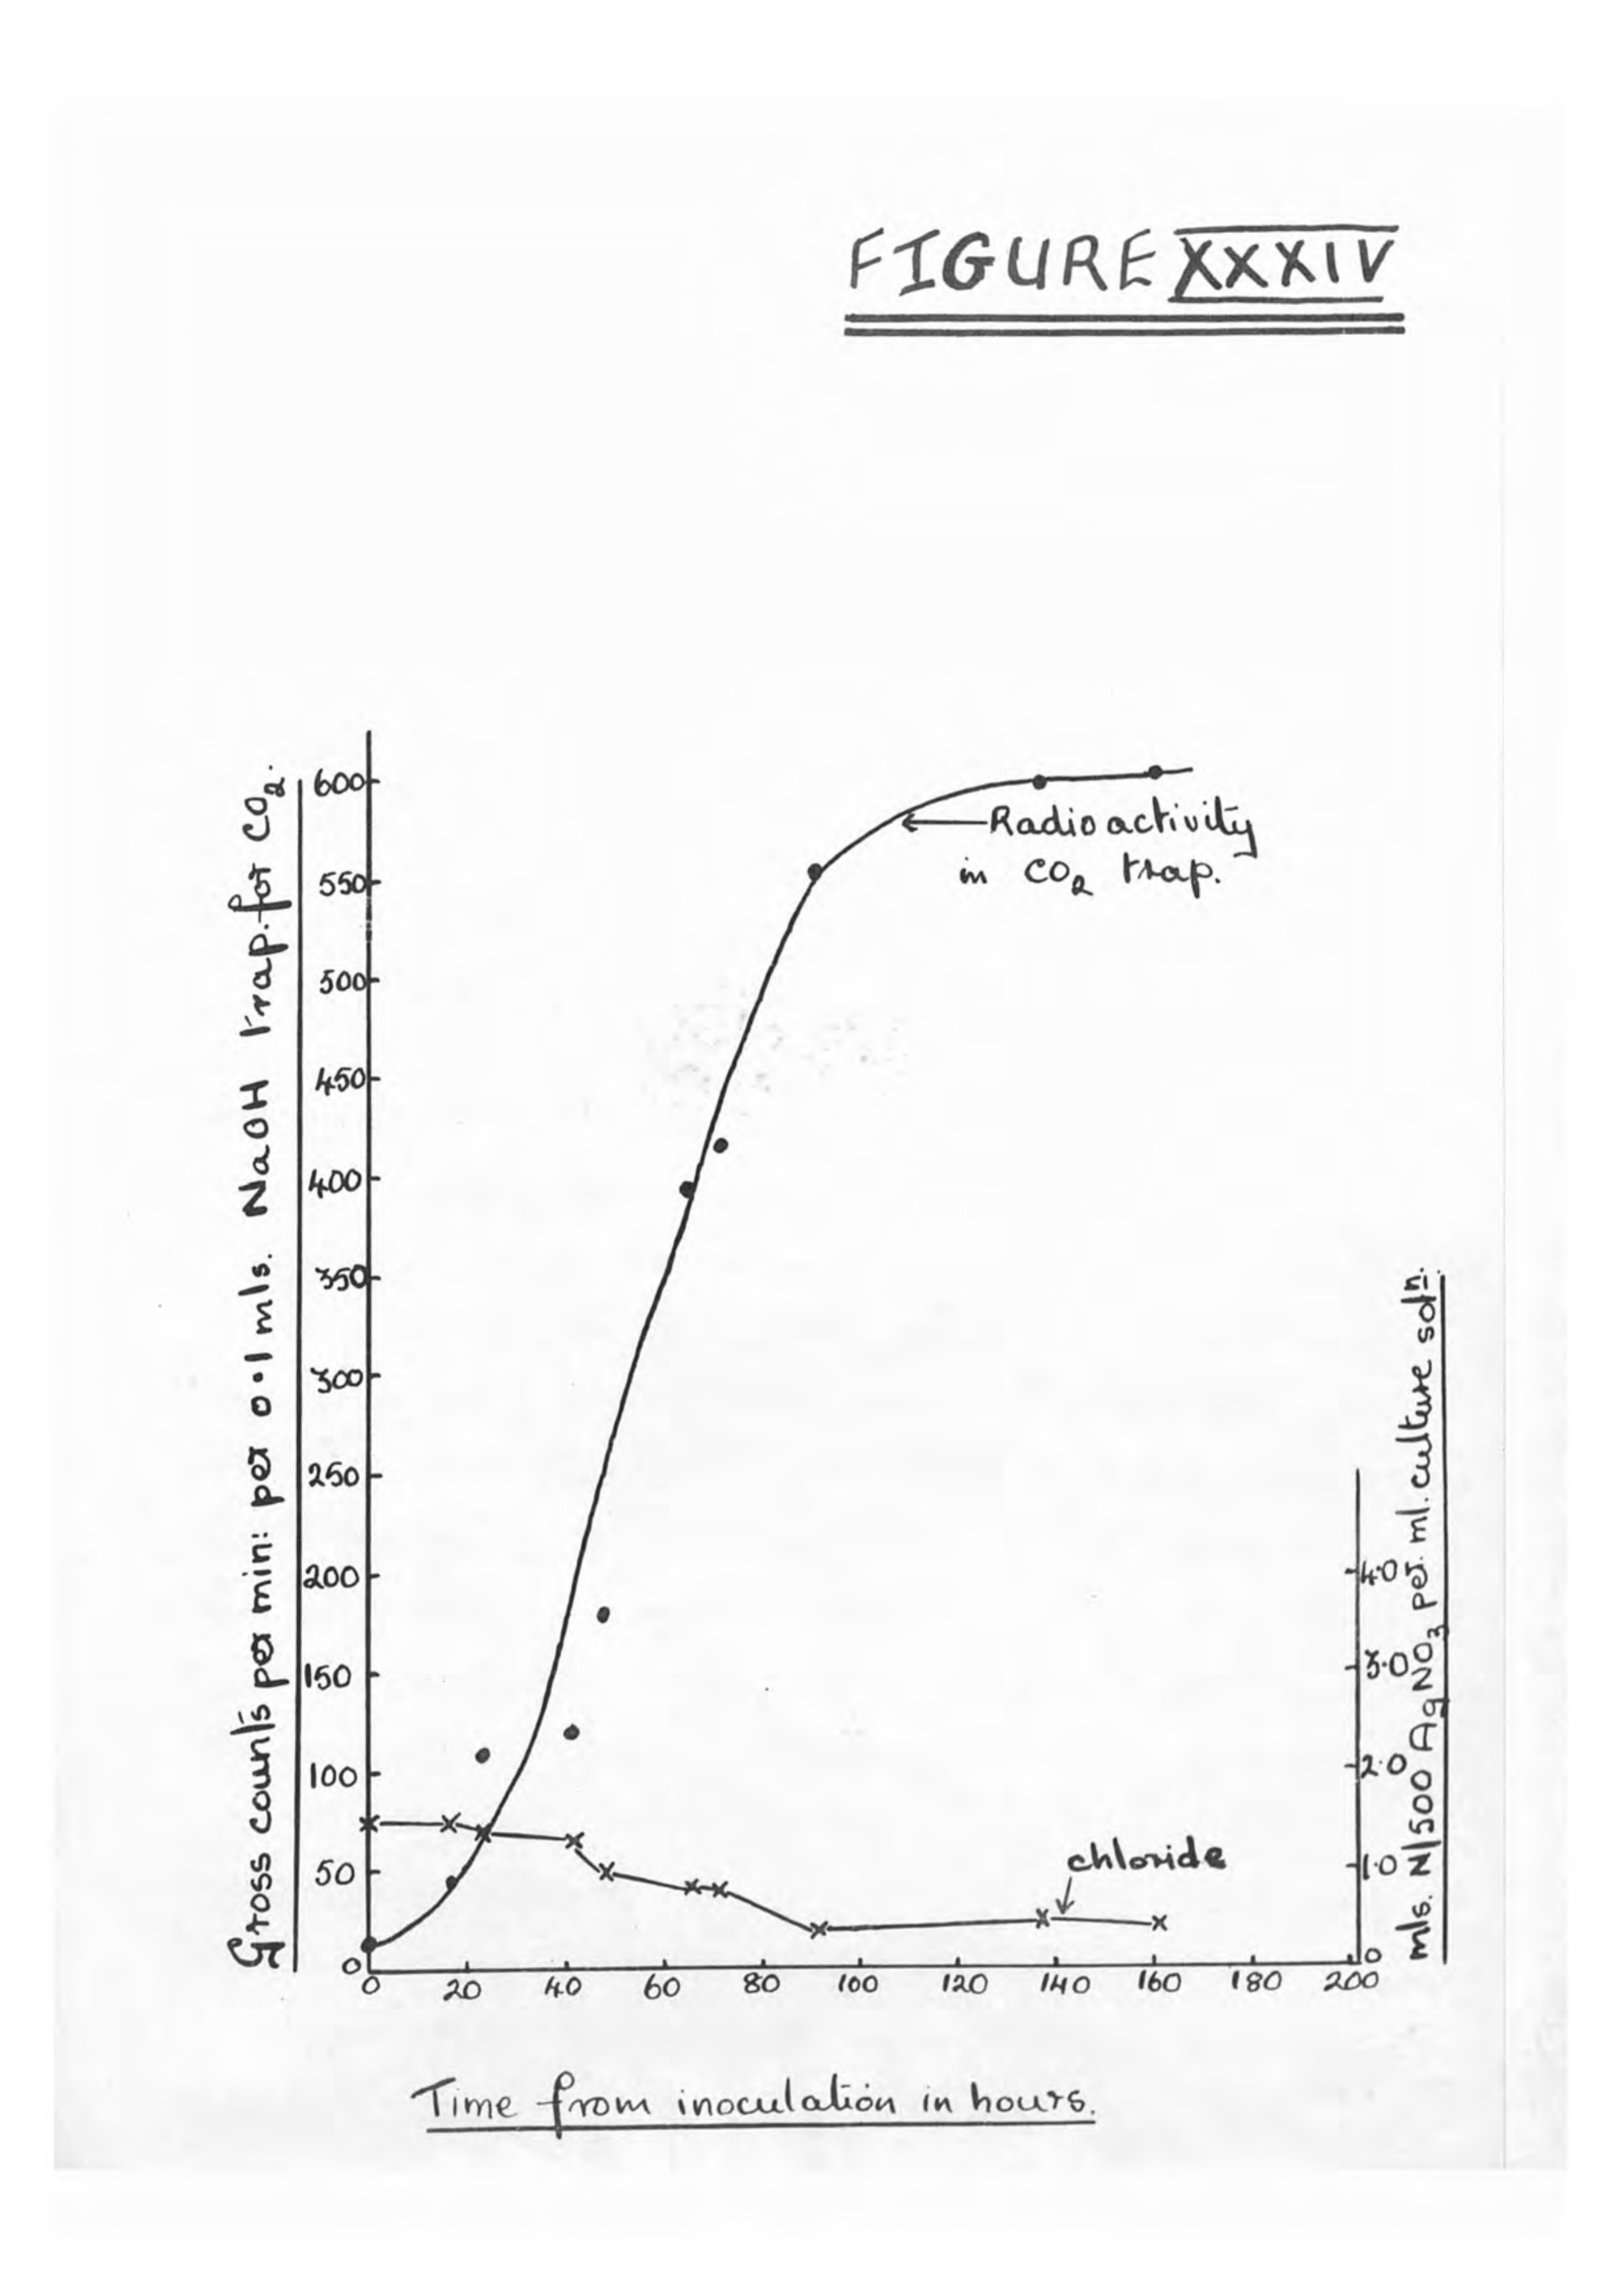 FIGURE XXXIV
Gross counts per min: per 0·1 mls. NaOH trap for CO2.
600
550
500
450
400
350
300
250
200
150
100
50
0
Radioactivity
in CO2 trap.
chloride
mls. N/500 AgNO3 per ml. culture solⁿ.
4·0
3·0
2·0
1·0
0
0 20 40 60 80 100 120 140 160 180 200
Time from inoculation in hours.